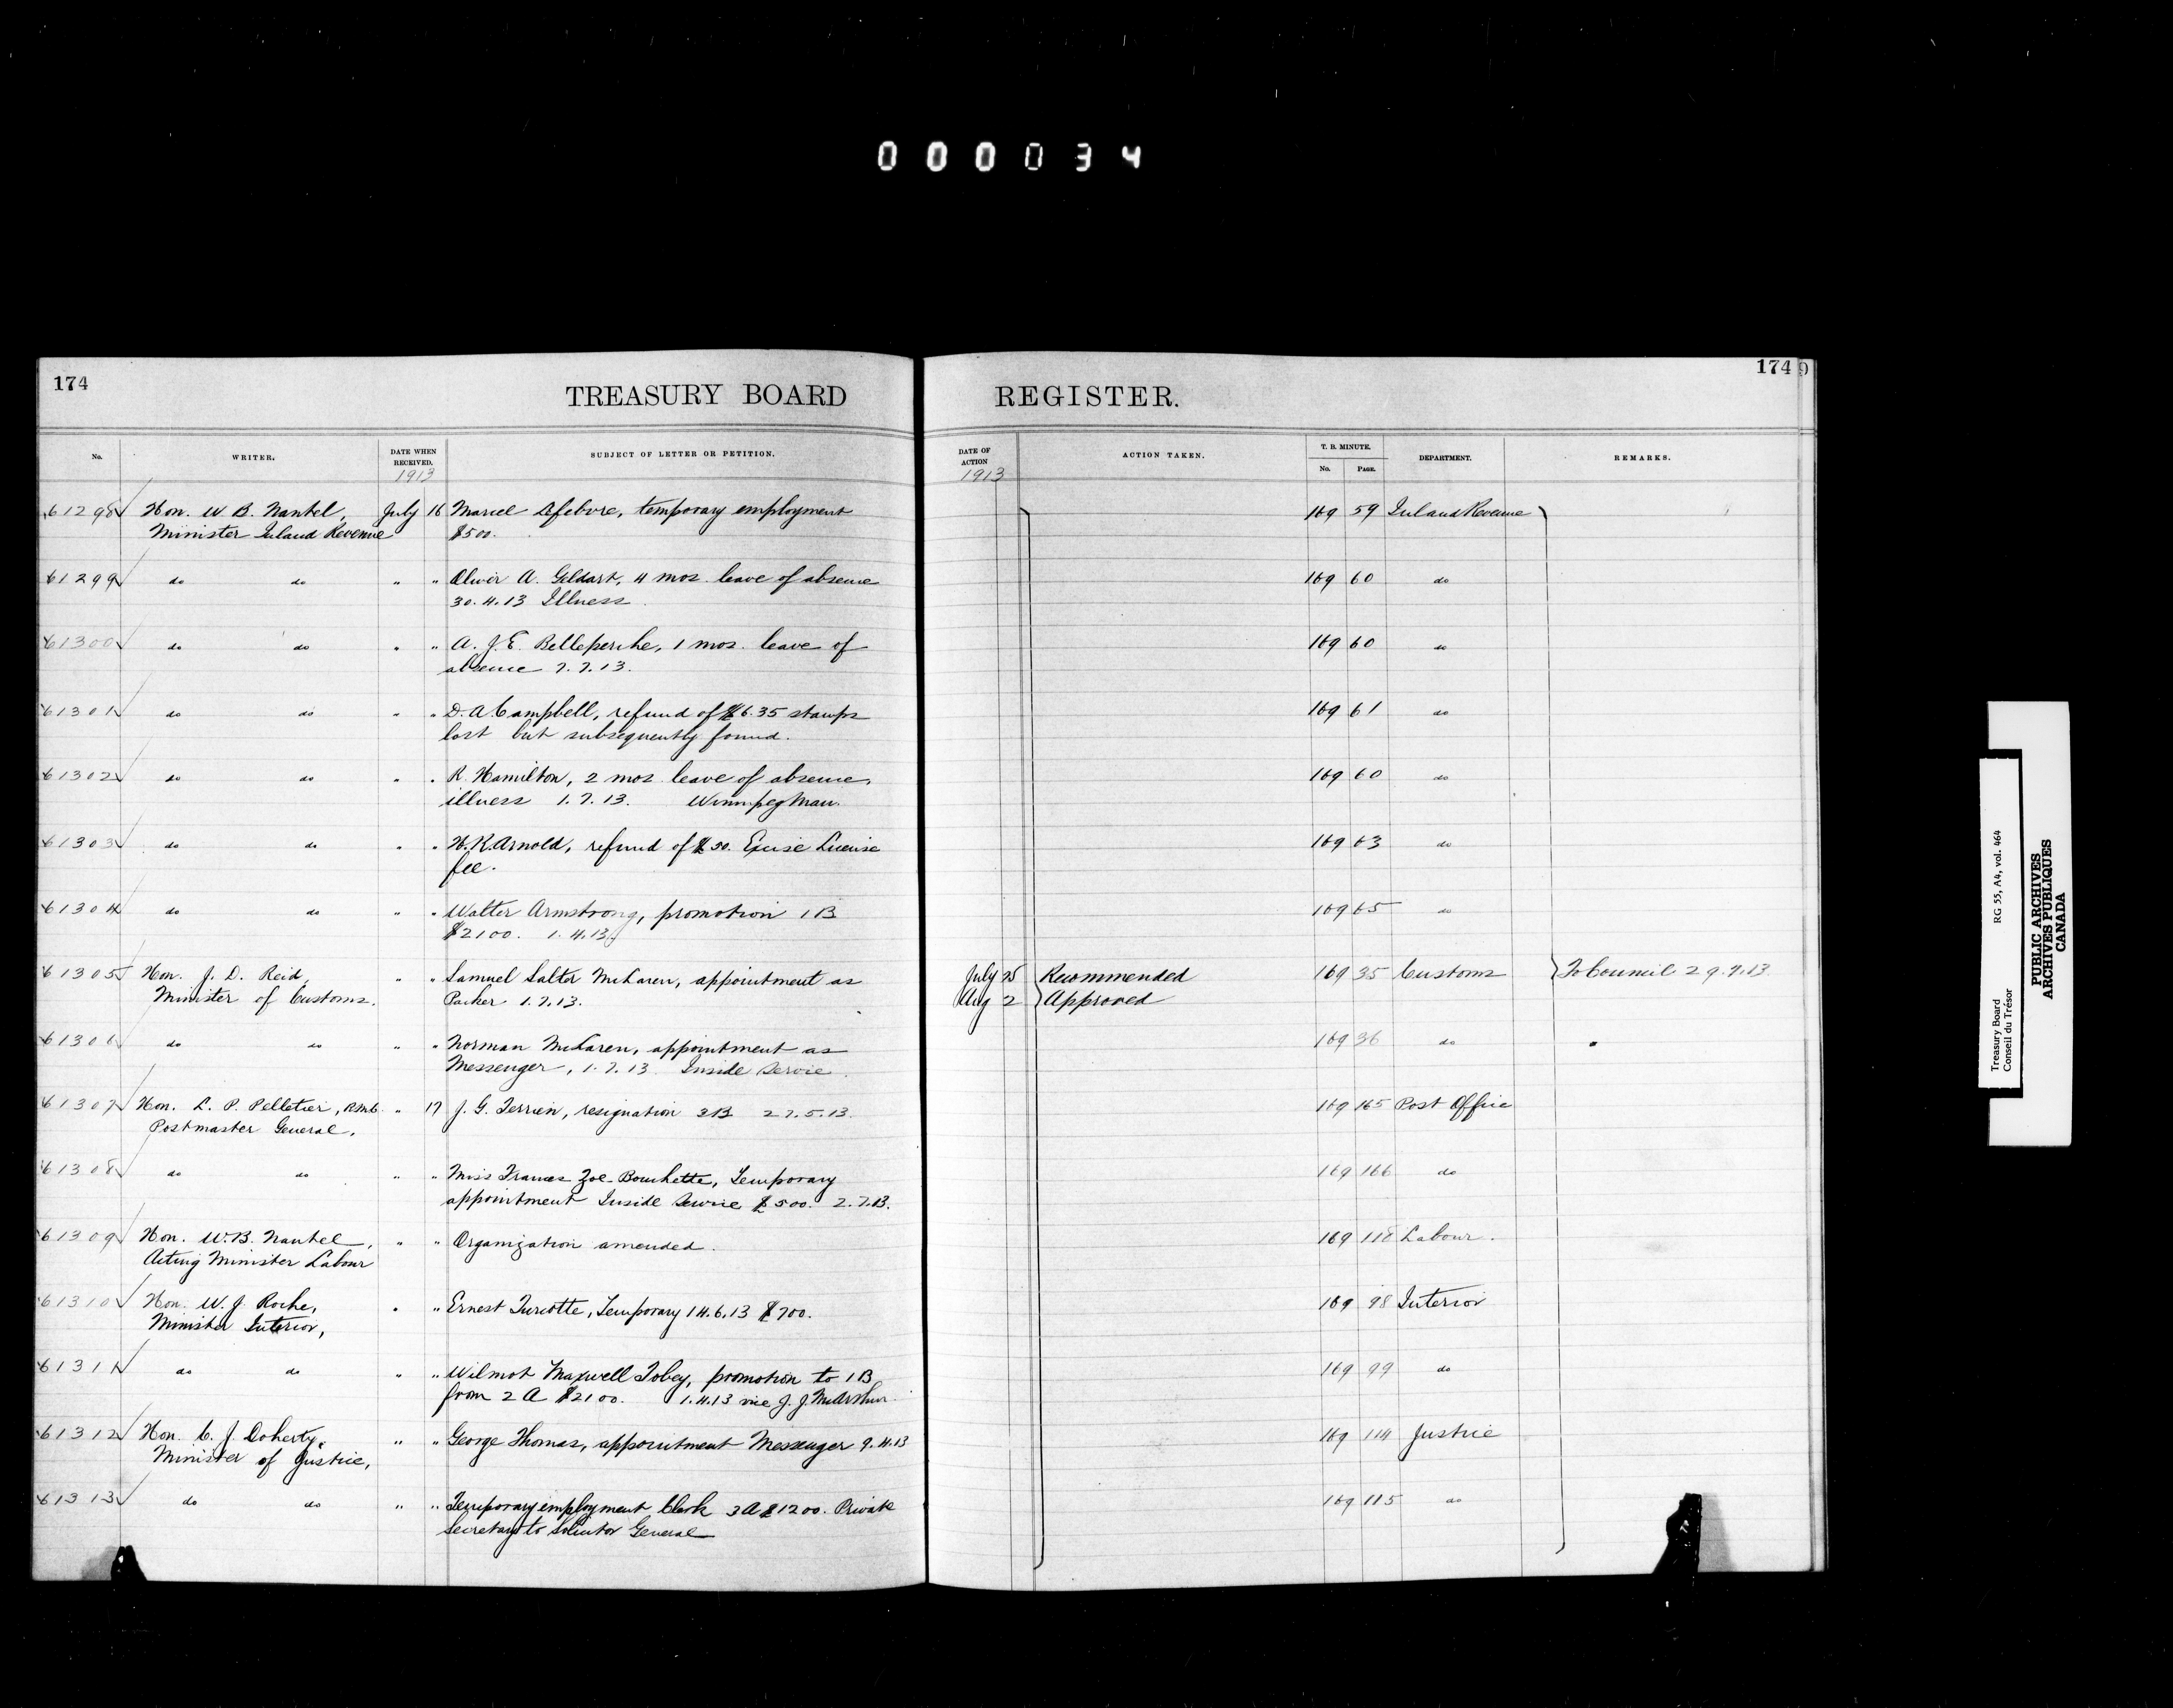 000034
174
TREASURY BOARD REGISTER.
174
No. WRITER. DATE WHEN RECEIVED. SUBJECT OF LETTER OR PETITION. DATE OF ACTION ACTION TAKEN. T. B. MINUTE. No. PAGE. DEPARTMENT. REMARKS.
1913 1913
61298 Hon. W B. Nantel, July 16 Marcel Lefebvre, temporary employment 169 59 Inland Revenue
Minister Inland Revenue $500.
61299 do do " " Oliver A. Geldart, 4 mos. leave of absence 169 60 do
30.4.13 Illness
61300 do do " " A. J. E. Belleperche, 1 mos. leave of 169 60 do
absence 7.7.13.
61301 do do " " D. A. Campbell, refund of $6.35 stamps 169 61 do
lost but subsequently found.
61302 do do " " R. Hamilton, 2 mos leave of absence, 169 60 do
illness 1.7.13. Winnipeg Man.
61303 do do " " H. R. Arnold, refund of $50. Excise License 169 63 do
fee.
61304 do do " " Walter Armstrong, promotion 1B 169 65 do
$2100. 1.4.13
61305 Hon. J. D. Reid, " " Samuel Salter McLaren, appointment as July 25 Recommended 169 35 Customs To Council 29.7.13
Minister of Customs. Packer 1.7.13. Aug 2 Approved
61306 do do " " Norman McLaren, appointment as 169 36 do "
Messenger, 1.7.13 Inside Service.
61307 Hon. L. P. Pelletier, " 17 J. G. Terrien, resignation 3B 27.5.13. 169 165 Post Office
Postmaster General,
61308 do do " " Miss Frances Zoe Bouchette, Temporary 169 166 do
appointment Inside Service $500. 2.7.13.
61309 Hon. W. B. Nantel, " " Organization amended. 169 118 Labour.
Acting Minister Labour
61310 Hon. W. J. Roche, " " Ernest Turcotte, Temporary 14.6.13 $700. 169 98 Interior
Minister Interior,
61311 do do " " Wilmot Maxwell Tobey, promotion to 1B 169 99 do
from 2A $2100. 1.4.13 vice J. J. McArthur.
61312 Hon. C. J. Doherty, " " George Thomas, appointment Messenger 9.4.13 169 114 Justice
Minister of Justice,
61313 do do " " Temporary employment Clerk 3A $1200. Private 169 115 do
Secretary to Solicitor General
Treasury Board RG 55, A4, vol. 464
Conseil du Trésor
PUBLIC ARCHIVES
ARCHIVES PUBLIQUES
CANADA